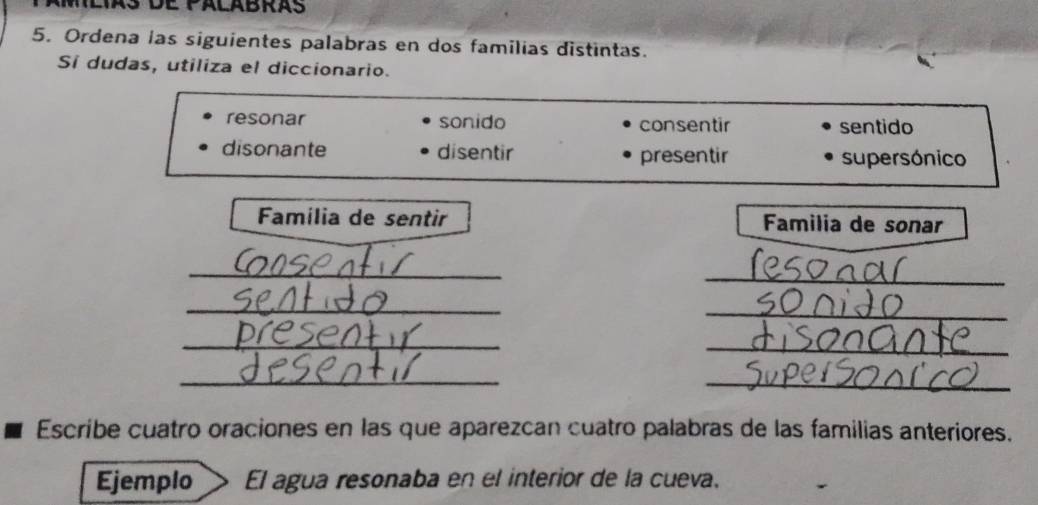 FAMILIAS DE PALABRAS
5. Ordena las siguientes palabras en dos familias distintas.
Si dudas, utiliza el diccionario.
• resonar • sonido • consentir • sentido
• disonante • disentir • presentir • supersónico
Familia de sentir Familia de sonar
consentir resonar
sentido sonido
presentir disonante
desentir supersonico
■ Escribe cuatro oraciones en las que aparezcan cuatro palabras de las familias anteriores.
Ejemplo El agua resonaba en el interior de la cueva.